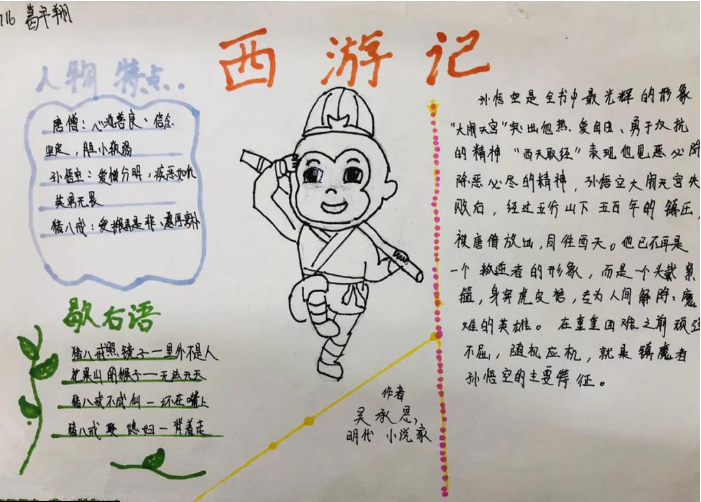 西游记
人物特点..
唐僧：心地善良、信念
坚定，胆小软弱
孙悟空：爱憎分明，疾恶如仇
英勇无畏
猪八戒：
歇后语
猪八戒照镜子——里外不是人
花果山的猴子——无法无天
猪八戒不成仙—坏在嘴上
猪八戒娶媳妇—背着走
作者
吴承恩，
明代 小说家
孙悟空是全书中最光辉的形象
"大闹天宫"突出他热爱自由、勇于反抗
的精神 "西天取经"表现他见恶必除
除恶必尽的精神，孙悟空大闹天宫失
败后，经过五行山下五百年的镇压，
被唐僧放出，同往西天。他已不再是
一个叛逆者的形象，而是一个头戴紧
箍，身穿虎皮裙，专为人间解除魔
难的英雄。在重重困难之前顽强
不屈，随机应机，就是镇魔者
孙悟空的主要特征。